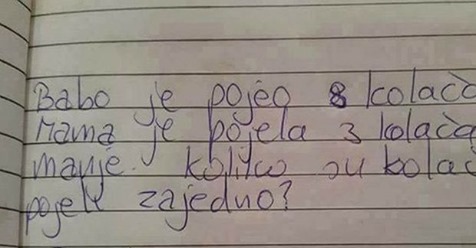 Babo je pojeo 8 kolača
Mama je pojela 3 kolača
manje. koliko su kolač
pojeli zajedno?